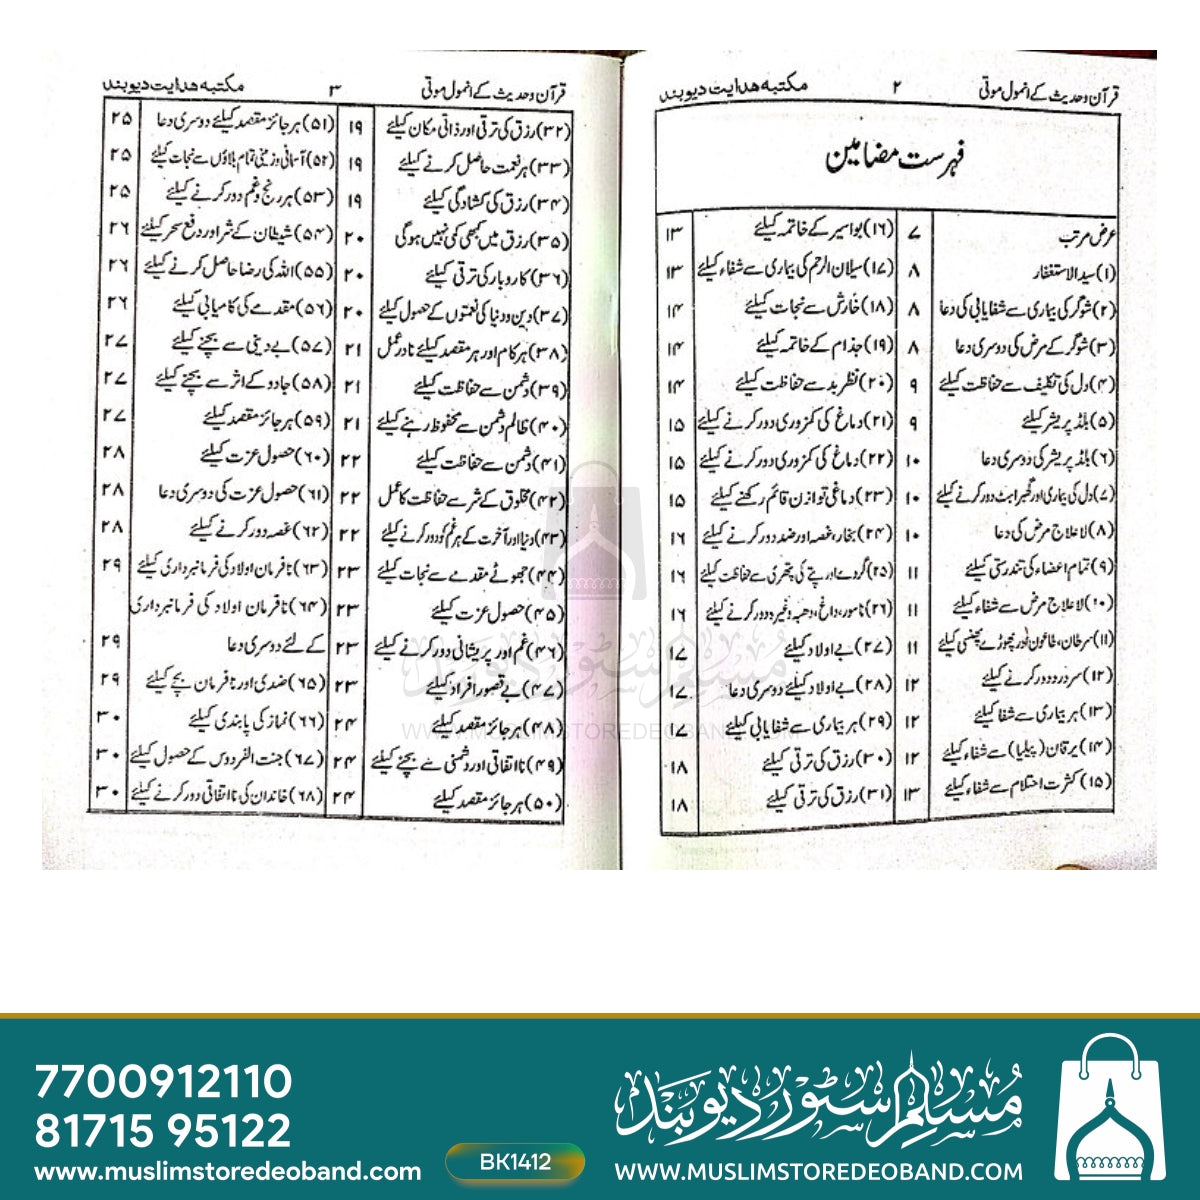 قرآن وحدیث کے انمول موتی ۲ مکتبه هدایت دیوبند
فہرست مضامین
عرض مرتب ۷
(۱) سید الاستغفار ۸
(۲) شوگر کی بیماری سے شفایابی کی دعا ۸
(۳) شوگر کے مرض کی دوسری دعا ۸
(۴) دل کی تکلیف سے حفاظت کیلئے ۹
(۵) بلڈ پریشر کیلئے ۹
(۶) بلڈ پریشر کی دوسری دعا ۱۰
(۷) دل کی بیماری اور گھبراہٹ دور کرنے کیلئے ۱۰
(۸) لاعلاج مرض کی دعا ۱۰
(۹) تمام اعضاء کی تندرستی کیلئے ۱۱
(۱۰) لاعلاج مرض سے شفاء کیلئے ۱۱
(۱۱) سرطان، طاعون اور پھوڑے پھنسی کیلئے ۱۱
(۱۲) سر درد دور کرنے کیلئے ۱۲
(۱۳) ہر بیماری سے شفا کیلئے ۱۲
(۱۴) یرقان (پیلیا) سے شفاء کیلئے ۱۲
(۱۵) کثرت احتلام سے شفاء کیلئے ۱۳
(۱۶) بواسیر کے خاتمہ کیلئے ۱۳
(۱۷) سیلان الرحم کی بیماری سے شفاء کیلئے ۱۳
(۱۸) خارش سے نجات کیلئے ۱۴
(۱۹) جذام کے خاتمہ کیلئے ۱۴
(۲۰) نظر بد سے حفاظت کیلئے ۱۴
(۲۱) دماغ کی کمزوری دور کرنے کیلئے ۱۵
(۲۲) دماغ کی کمزوری دور کرنے کیلئے ۱۵
(۲۳) دماغی توازن قائم رکھنے کیلئے ۱۵
(۲۴) بخار، غصہ اور ضد دور کرنے کیلئے ۱۶
(۲۵) گردے اور پتے کی پتھری سے حفاظت کیلئے ۱۶
(۲۶) ناسور، داغ، دھبہ وغیرہ دور کرنے کیلئے ۱۶
(۲۷) بے اولاد کیلئے ۱۷
(۲۸) بے اولاد کیلئے دوسری دعا ۱۷
(۲۹) ہر بیماری سے شفایابی کیلئے ۱۷
(۳۰) رزق کی ترقی کیلئے ۱۸
(۳۱) رزق کی ترقی کیلئے ۱۸
قرآن وحدیث کے انمول موتی ۳ مکتبه هدایت دیوبند
(۳۲) رزق کی ترقی اور ذاتی مکان کیلئے ۱۹
(۳۳) ہر نعمت حاصل کرنے کیلئے ۱۹
(۳۴) رزق کی کشادگی کیلئے ۱۹
(۳۵) رزق میں کبھی کمی نہیں ہوگی ۲۰
(۳۶) کاروبار کی ترقی کیلئے ۲۰
(۳۷) دین و دنیا کی نعمتوں کے حصول کیلئے ۲۰
(۳۸) ہر کام اور ہر مقصد کیلئے نادر عمل ۲۱
(۳۹) دشمن سے حفاظت کیلئے ۲۱
(۴۰) ظالم دشمن سے محفوظ رہنے کیلئے ۲۱
(۴۱) دشمن سے حفاظت کیلئے ۲۲
(۴۲) مخلوق کے شر سے حفاظت کا عمل ۲۲
(۴۳) دنیا اور آخرت کے ہر غم کو دور کرنے کیلئے ۲۲
(۴۴) جھوٹے مقدمے سے نجات کیلئے ۲۳
(۴۵) حصول عزت کیلئے ۲۳
(۴۶) غم اور پریشانی دور کرنے کیلئے ۲۳
(۴۷) بے قصور افراد کیلئے ۲۳
(۴۸) ہر جائز مقصد کیلئے ۲۴
(۴۹) نااتفاقی اور دشمنی سے بچنے کیلئے ۲۴
(۵۰) ہر جائز مقصد کیلئے ۲۴
(۵۱) ہر جائز مقصد کیلئے دوسری دعا ۲۵
(۵۲) آسمانی و زمینی تمام بلاؤں سے نجات کیلئے ۲۵
(۵۳) ہر رنج و غم دور کرنے کیلئے ۲۵
(۵۴) شیطان کے شر اور دفع سحر کیلئے ۲۶
(۵۵) اللہ کی رضا حاصل کرنے کیلئے ۲۶
(۵۶) مقدمے کی کامیابی کیلئے ۲۶
(۵۷) بے دینی سے بچنے کیلئے ۲۷
(۵۸) جادو کے اثر سے بچنے کیلئے ۲۷
(۵۹) ہر جائز مقصد کیلئے ۲۷
(۶۰) حصول عزت کیلئے ۲۸
(۶۱) حصول عزت کی دوسری دعا ۲۸
(۶۲) غصہ دور کرنے کیلئے ۲۸
(۶۳) نافرمان اولاد کی فرمانبرداری کیلئے ۲۹
(۶۴) نافرمان اولاد کی فرمانبرداری
کے لئے دوسری دعا ۲۹
(۶۵) ضدی اور نافرمان بچے کیلئے ۲۹
(۶۶) نماز کی پابندی کیلئے ۳۰
(۶۷) جنت الفردوس کے حصول کیلئے ۳۰
(۶۸) خاندان کی نااتفاقی دور کرنے کیلئے ۳۰
مسلم سٹور دیوبند
WWW.MUSLIMSTOREDEOBAND.COM
7700912110
81715 95122
www.muslimstoredeoband.com
BK1412
مسلم سٹور دیوبند
WWW.MUSLIMSTOREDEOBAND.COM